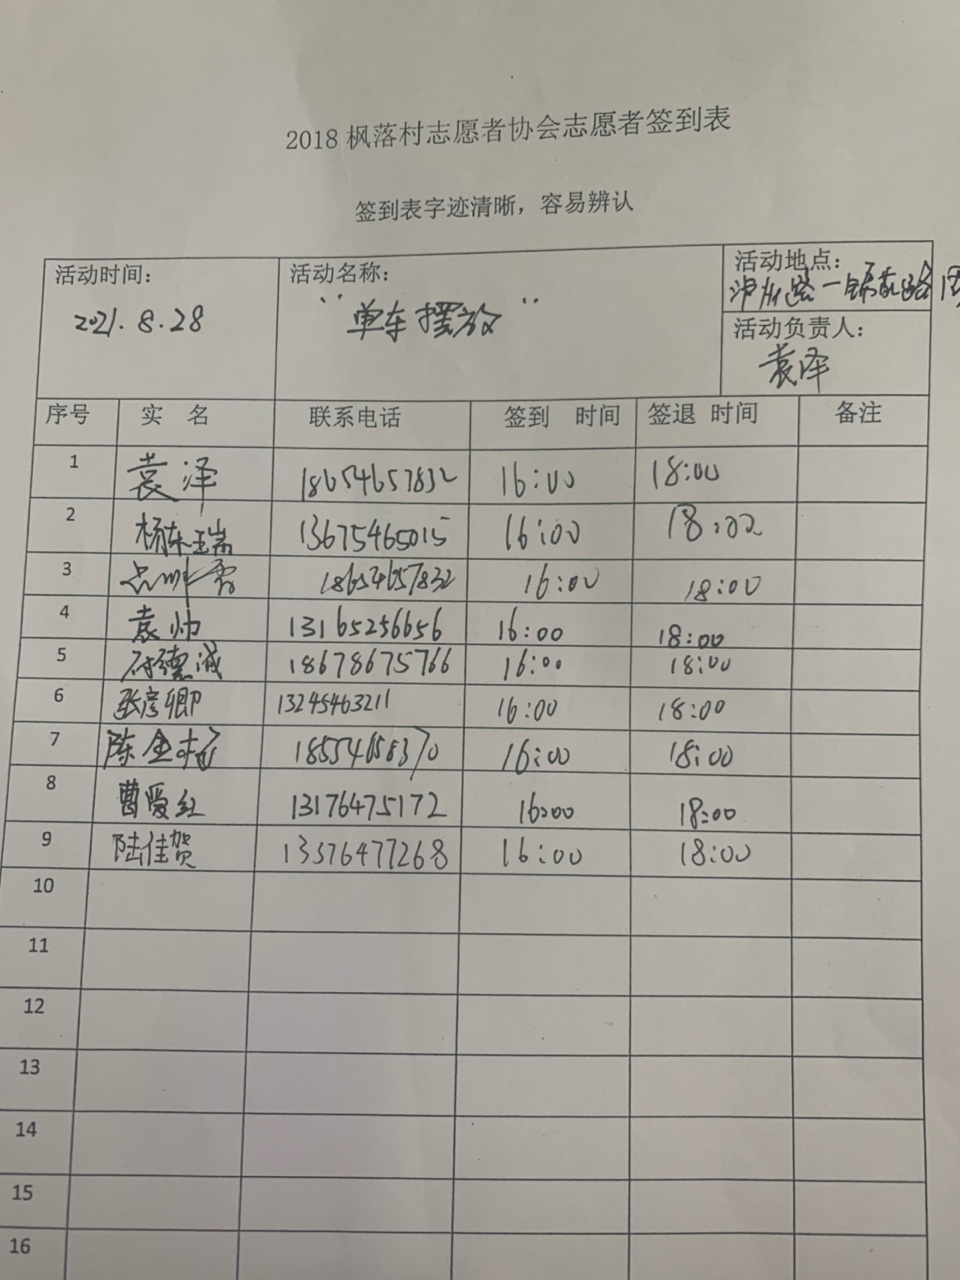 2018 枫落村志愿者协会志愿者签到表
签到表字迹清晰，容易辨认
活动时间：
2021.8.28
活动名称：
"单车摆放"
活动地点：
活动负责人：
袁泽
序号 实 名 联系电话 签到 时间 签退 时间 备注
1 袁泽 18654657832 16:00 18:00
2 杨东瑞 13675465015 16:00 18:02
3 18654657832 16:00 18:00
4 袁帅 13165256656 16:00 18:00
5 德诚 18678675766 16:00 18:00
6 张彦卿 13245463211 16:00 18:00
7 陈金 18554658370 16:00 18:00
8 曹爱红 13176475172 16:00 18:00
9 陆佳贺 13376477268 16:00 18:00
10
11
12
13
14
15
16